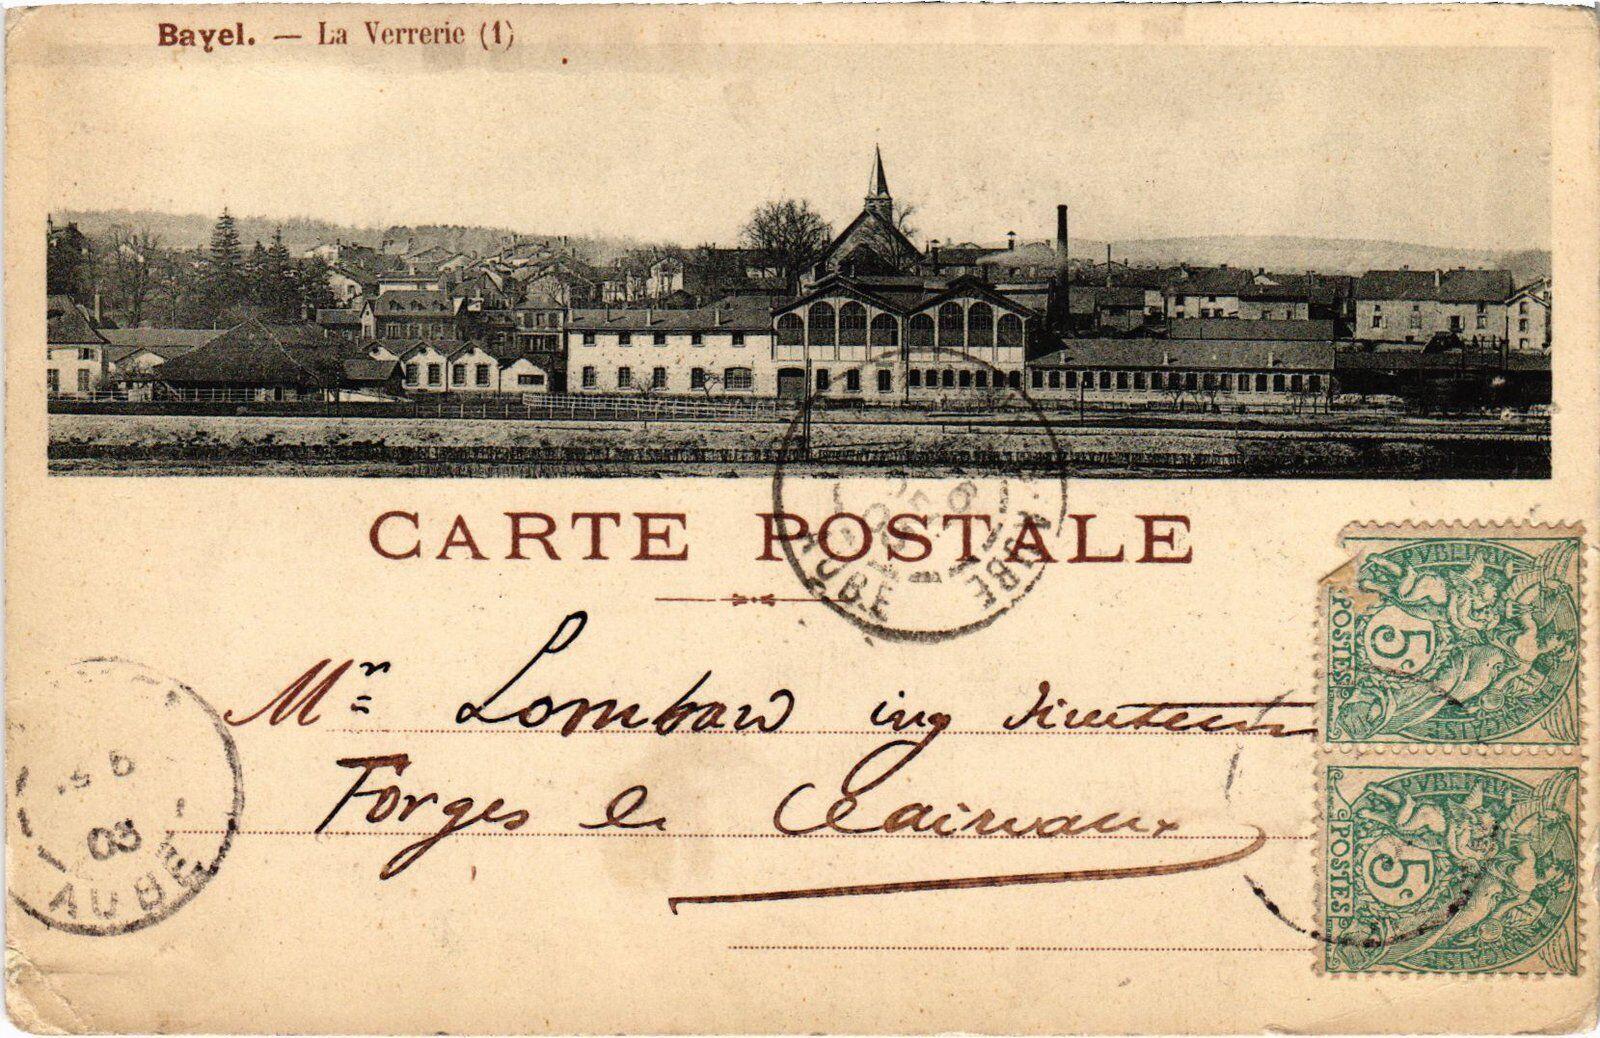 Bayel. — La Verrerie (1)
CARTE POSTALE
AUBE
AUBE
Mr Lombard ing directeur
Forges de Clairvaux
6
03
AUBE
5c
POSTES
REPUBLIQUE
FRANÇAISE
5c
POSTES
REPUBLIQUE
FRANÇAISE